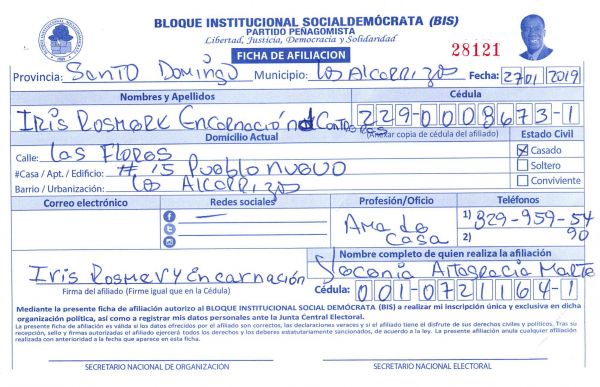 BLOQUE INSTITUCIONAL SOCIALDEMÓCRATA (BIS)
PARTIDO PEÑAGOMISTA
Libertad, Justicia, Democracia y Solidaridad
FICHA DE AFILIACION
28121
Provincia: Santo Domingo Municipio: Los Alcarrizos Fecha: 27 01 2019
Nombres y Apellidos Cédula
Iris Rosmery Encarnación 229-0008673-1
Domicilio Actual (Anexar copia de cédula del afiliado) Estado Civil
Calle: Las Flores Casado
#Casa / Apt. / Edificio: # 15 Pueblo nuevo Soltero
Barrio / Urbanización: Los Alcarrizos Conviviente
Correo electrónico Redes sociales Profesión/Oficio Teléfonos
Ama de casa
1) 829-959-5490
2)
Nombre completo de quien realiza la afiliación
Iris Rosmery Encarnación Altagracia Marte
Firma del afiliado (Firme igual que en la Cédula) Cédula: 001-0721164-1
Mediante la presente ficha de afiliación autorizo al BLOQUE INSTITUCIONAL SOCIAL DEMÓCRATA (BIS) a realizar mi inscripción única y exclusiva en dicha
organización política, así como a registrar mis datos personales ante la Junta Central Electoral.
La presente ficha de afiliación es válida si los datos ofrecidos por el afiliado son correctos, las declaraciones veraces y si el afiliado tiene el disfrute de sus derechos civiles y políticos. Tras su
recepción, sello y firmas autorizadas el afiliado ejercerá todos los derechos y los deberes estatutariamente sancionados, de acuerdo a la ley. La presente afiliación anula cualquier afiliación
realizada con anterioridad a la fecha que aparece en esta ficha.
SECRETARIO NACIONAL DE ORGANIZACIÓN SECRETARIO NACIONAL ELECTORAL